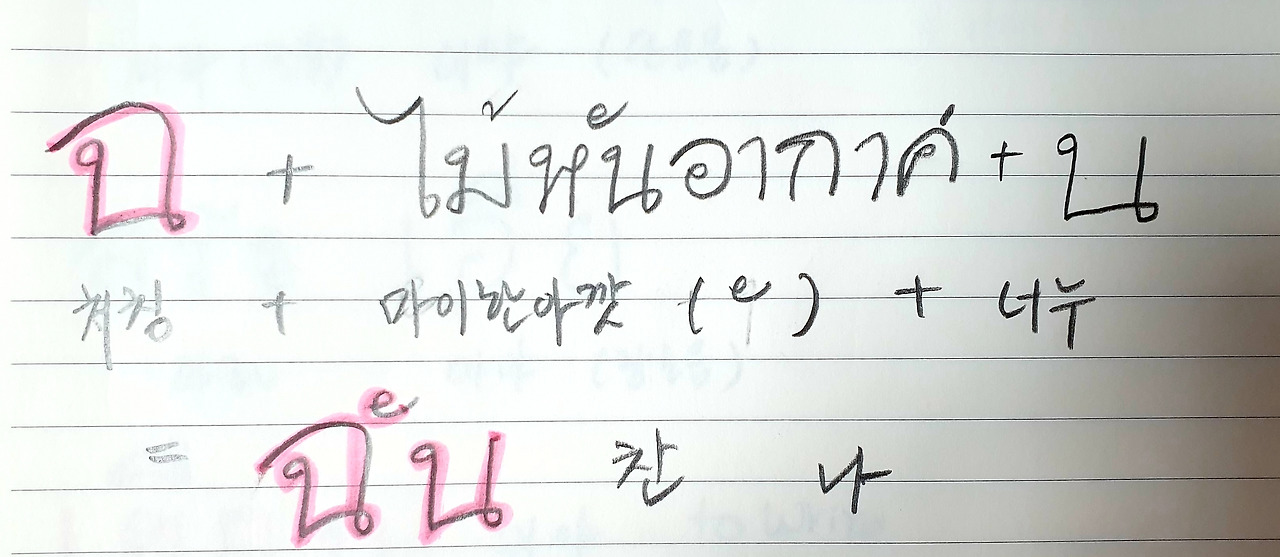 ฉ + ไม้หันอากาศ + น
처칭 + 마이한아깟 ( ั ) + 너누
= ฉัน 찬 나